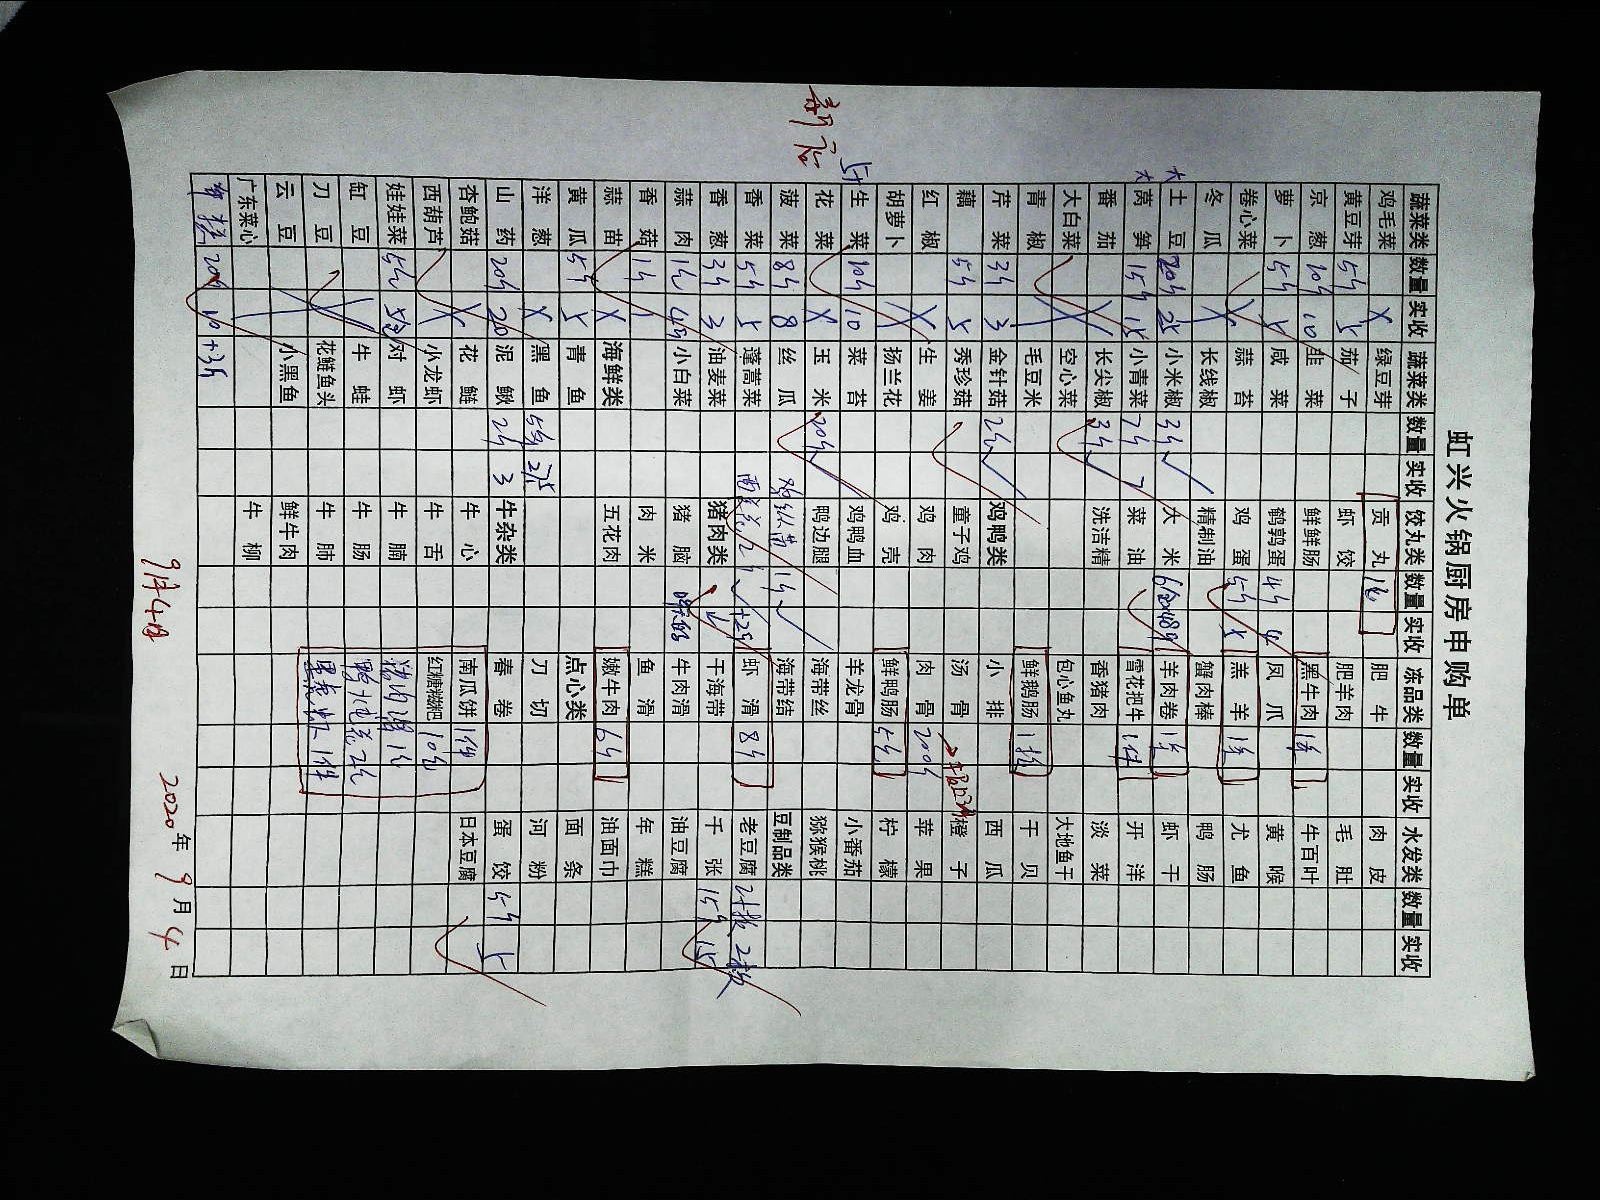 虹兴火锅厨房申购单
新店
蔬菜类 数量 实收 蔬菜类 数量 实收 饺丸类 数量 实收 冻品类 数量 实收 水发类 数量 实收
鸡毛菜 绿豆芽 贡丸 1包 肥牛 肉皮
黄豆芽 5斤 5 茄子 虾饺 肥羊肉 毛肚
京葱 10斤 10 韭菜 鲜鲜肠 黑牛肉 1件 牛百叶
萝卜 5斤 5 咸菜 鹌鹑蛋 4斤 4 凤爪 黄喉
卷心菜 蒜苔 鸡蛋 5斤 5 羔羊 1件 尤鱼
冬瓜 长线椒 精制油 蟹肉棒 鸭肠
大 土豆 20斤 25 小米椒 3斤 大米 羊肉卷 1件 虾干
大 莴笋 15斤 15 小青菜 7斤 7 菜油 雪花把牛 1件 开洋
番茄 长尖椒 3斤 洗洁精 香猪肉 淡菜
大白菜 空心菜 包心鱼丸 大地鱼干
青椒 毛豆米 鲜鹅肠 干贝
芹菜 3斤 3 金针菇 2斤 鸡鸭类 小排 西瓜
藕 5斤 5 秀珍菇 童子鸡 汤骨 橙子
红椒 生姜 鸡肉 肉骨 200斤 苹果
胡萝卜 扬兰花 鸡壳 鲜鸭肠 5斤 柠檬
生菜 10斤 10 菜苔 鸡鸭血 羊龙骨 小番茄
花菜 玉米 20斤 鸭边腿 海带丝 猕猴桃
菠菜 8斤 8 丝瓜 1斤 海带结 豆制品类
香菜 5斤 5 蓬蒿菜 虾滑 8斤 老豆腐 2板 2板
香葱 3斤 3 油麦菜 猪肉类 干海带 千张 15斤 15
蒜肉 1斤 小白菜 猪脑 牛肉滑 油豆腐
香菇 1斤 肉米 鱼滑 年糕
蒜苗 海鲜类 五花肉 嫩牛肉 6斤 油面巾
黄瓜 5斤 5 青鱼 点心类 面条
洋葱 黑鱼 5条 刀切 河粉
山药 20斤 20 泥鳅 2斤 3 牛杂类 春卷 蛋饺 5斤 5
杏鲍菇 花鲢 牛心 南瓜饼 1件 日本豆腐
西葫芦 小龙虾 牛舌 红糖糍粑 10包
娃娃菜 5斤 对虾 牛腩
缸豆 牛蛙 牛肠
刀豆 花鲢鱼头 牛肺
云豆 小黑鱼 鲜牛肉
广东菜心 牛柳
9月4日
2020年9月4日